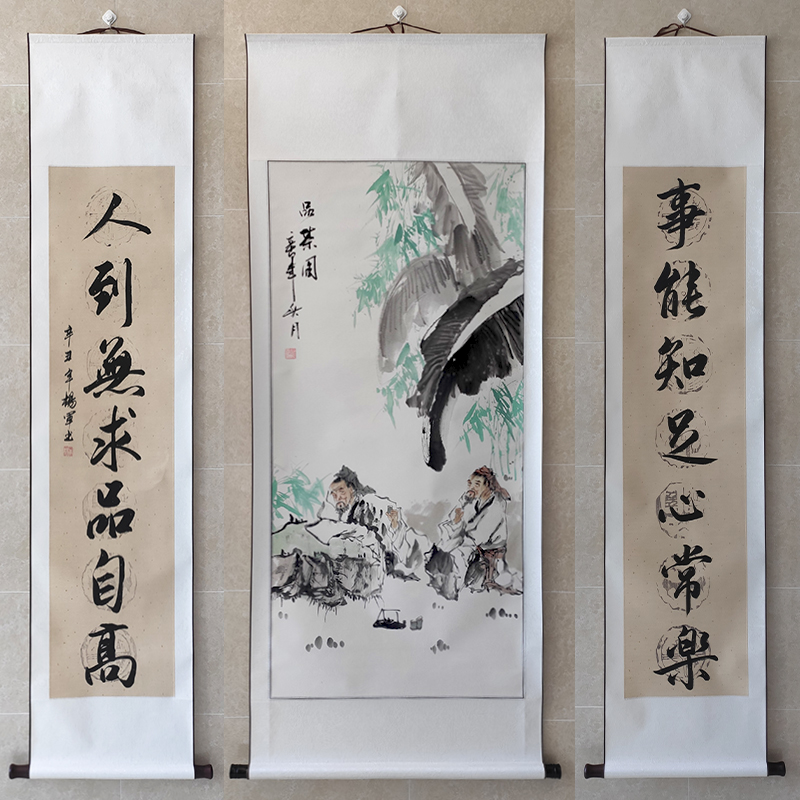 事能知足心常樂
品茶圖
人到無求品自高
辛丑年楊軍書